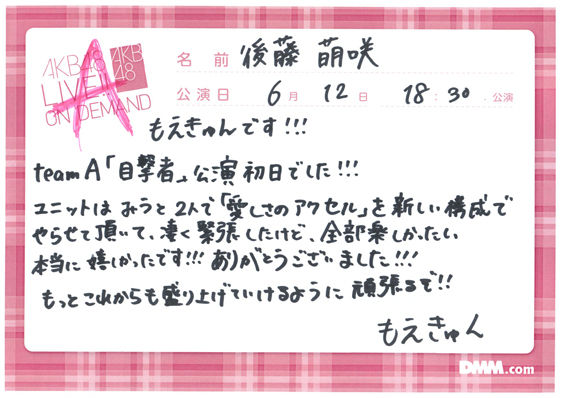 AKB48
LIVE!!
ON DEMAND
AKB
48
A
名前 後藤 萌咲
公演日 6月 12日 18:30.公演
もえきゅんです!!!
teamA「目撃者」公演初日でした!!!
ユニットは みうと 2人で「愛しさのアクセル」を 新しい構成で
やらせて頂いて、凄く緊張したけど、全部楽しかったい
本当に嬉しかったです!!! ありがとうございました!!!
もっとこれからも盛り上げていけるように 頑張るで!!
もえきゅん
DMM.com